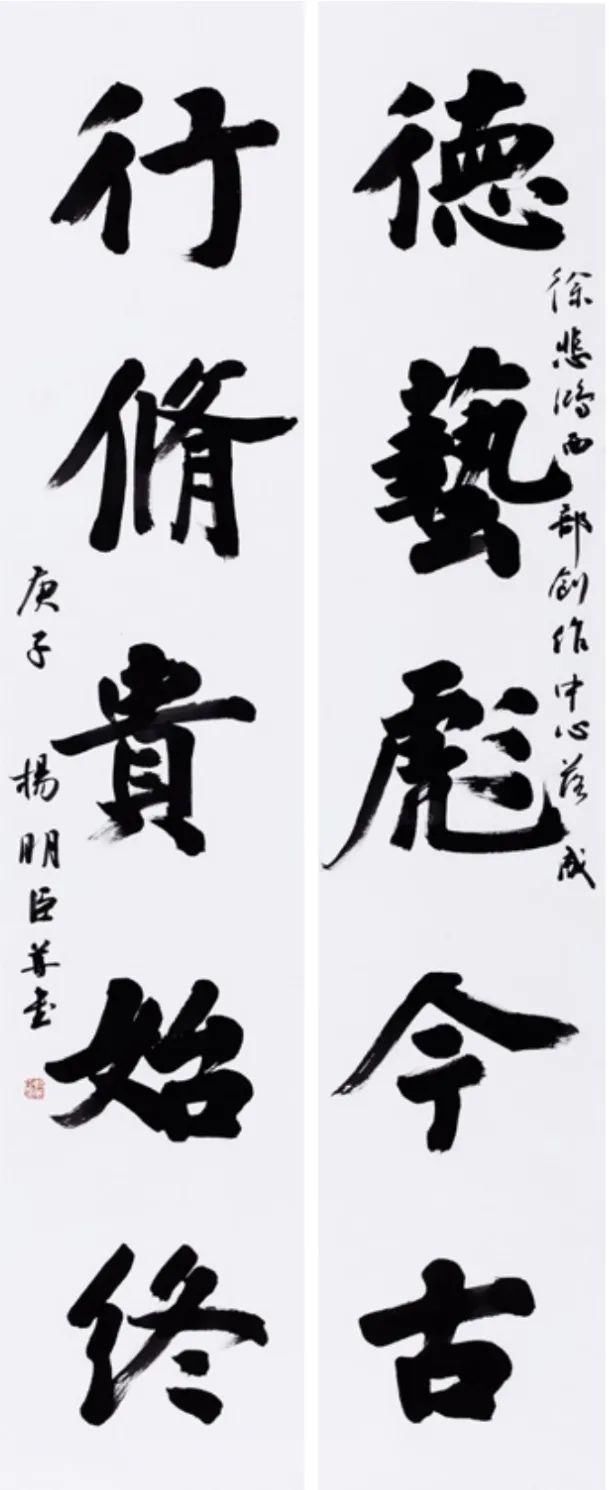 德藝彪今古
徐悲鸿西部创作中心落成
行脩貴始终
庚子 楊明臣书